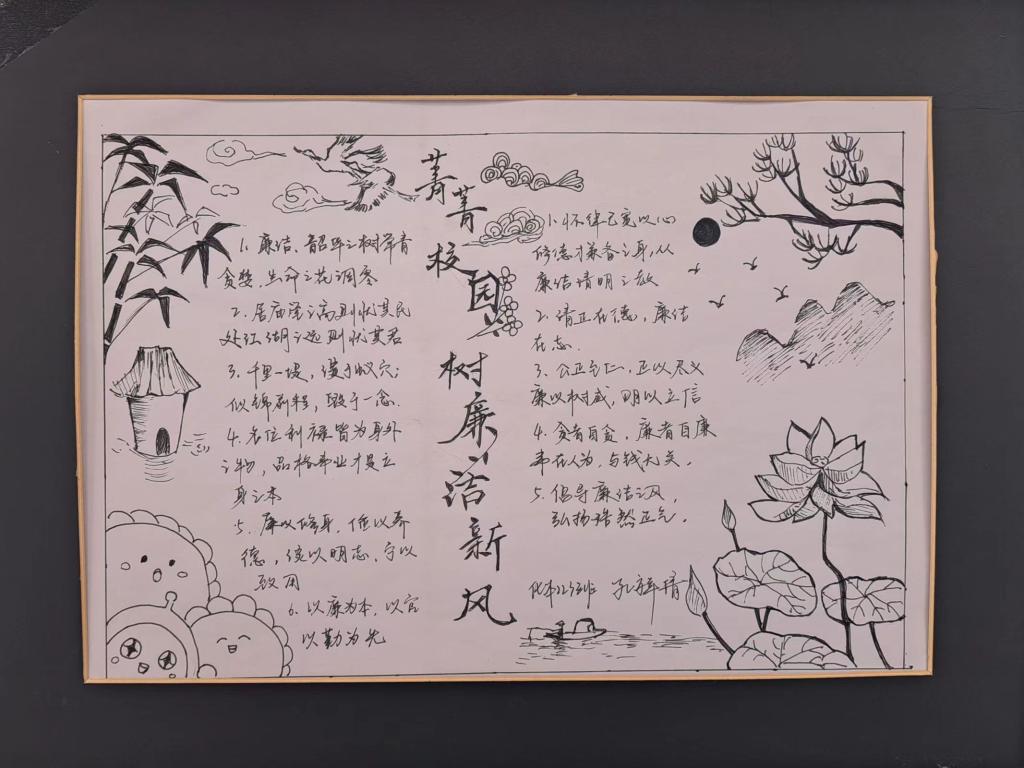 菁菁校园
树廉洁新风
1. 廉洁、韶华之树常青
贪婪、生命之花凋零
2. 居庙堂之高则忧其民
处江湖之远则忧其君
3. 千里之堤，溃于蚁穴；
似锦前程，毁于一念.
4. 名位利禄皆为身外
之物，品格事业才是立
身之本
5. 廉以修身，俭以养
德，俭以明志，守以
致用
6. 以廉为本，以
以勤为先
1. 怀律己宽以心
修德才兼备之身，从
廉洁清明之政
2. 清正在德，廉洁
在志.
3. 公正
廉以树威，明以立信
4. 贪者自贪，廉者自廉
事在人为，与钱无关。
5. 倡导廉洁之风，
弘扬浩然正气。